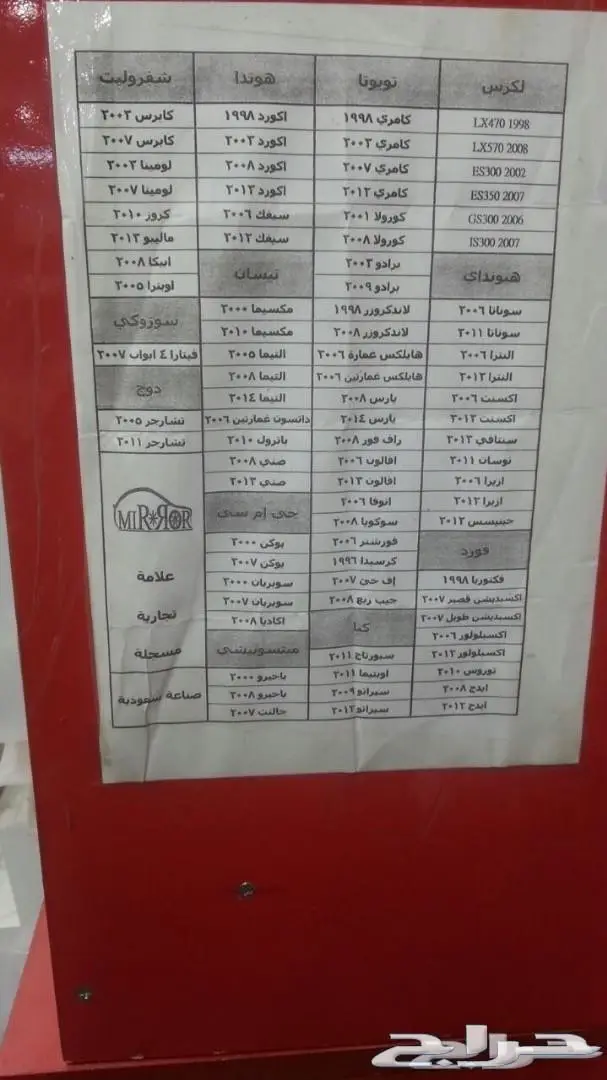 لكزس
LX470 1998
LX570 2008
ES300 2002
ES350 2007
GS300 2006
IS300 2007
هيونداي
سوناتا ٢٠٠٦
سوناتا ٢٠١١
النترا ٢٠٠٦
النترا ٢٠١٢
اكسنت ٢٠٠٦
اكسنت ٢٠١٢
سنتافي ٢٠١٢
توسان ٢٠١١
ازيرا ٢٠٠٦
ازيرا ٢٠١٢
جينيسس ٢٠١٢
فورد
فكتوريا ١٩٩٨
اكسبديشن قصير ٢٠٠٧
اكسبديشن طويل ٢٠٠٧
اكسبلولور ٢٠٠٦
اكسبلولور ٢٠١٢
توروس ٢٠١٠
ايدج ٢٠٠٨
ايدج ٢٠١٢
تويوتا
كامري ١٩٩٨
كامري ٢٠٠٣
كامري ٢٠٠٧
كامري ٢٠١٢
كورولا ٢٠٠١
كورولا ٢٠٠٨
برادو ٢٠٠٣
برادو ٢٠٠٩
لاندكروزر ١٩٩٨
لاندكروزر ٢٠٠٨
هايلكس غمارة ٢٠٠٦
هايلكس غمارتين ٢٠٠٦
يارس ٢٠٠٨
يارس ٢٠١٤
راف فور ٢٠٠٨
افالون ٢٠٠٦
افالون ٢٠١٣
انوفا ٢٠٠٦
سوكويا ٢٠٠٨
فورشنر ٢٠٠٦
كرسيدا ١٩٩٦
إف جي ٢٠٠٧
جيب ربع ٢٠٠٨
كيا
سبورتاج ٢٠١١
اوبتيما ٢٠١١
سيراتو ٢٠٠٩
سيراتو ٢٠١٢
هوندا
اكورد ١٩٩٨
اكورد ٢٠٠٣
اكورد ٢٠٠٨
اكورد ٢٠١٣
سيفك ٢٠٠٦
سيفك ٢٠١٢
نيسان
مكسيما ٢٠٠٠
مكسيما ٢٠١٠
التيما ٢٠٠٥
التيما ٢٠٠٨
التيما ٢٠١٤
داتسون غمارتين ٢٠٠٦
باترول ٢٠١٠
صني ٢٠٠٨
صني ٢٠١٣
جي إم سي
يوكن ٢٠٠٠
يوكن ٢٠٠٧
سوبربان ٢٠٠٠
سوبربان ٢٠٠٧
اكاديا ٢٠٠٨
ميتسوبيشي
باجيرو ٢٠٠٠
باجيرو ٢٠٠٨
جالنت ٢٠٠٧
شفروليت
كابرس ٢٠٠٣
كابرس ٢٠٠٧
لومينا ٢٠٠٣
لومينا ٢٠٠٧
كروز ٢٠١٠
ماليبو ٢٠١٣
ابيكا ٢٠٠٨
اوبترا ٢٠٠٥
سوزوكي
فيتارا ٤ ابواب ٢٠٠٧
دوج
تشارجر ٢٠٠٥
تشارجر ٢٠١١
MIRROR
علامة
تجارية
مسجلة
صناعة سعودية
حراج